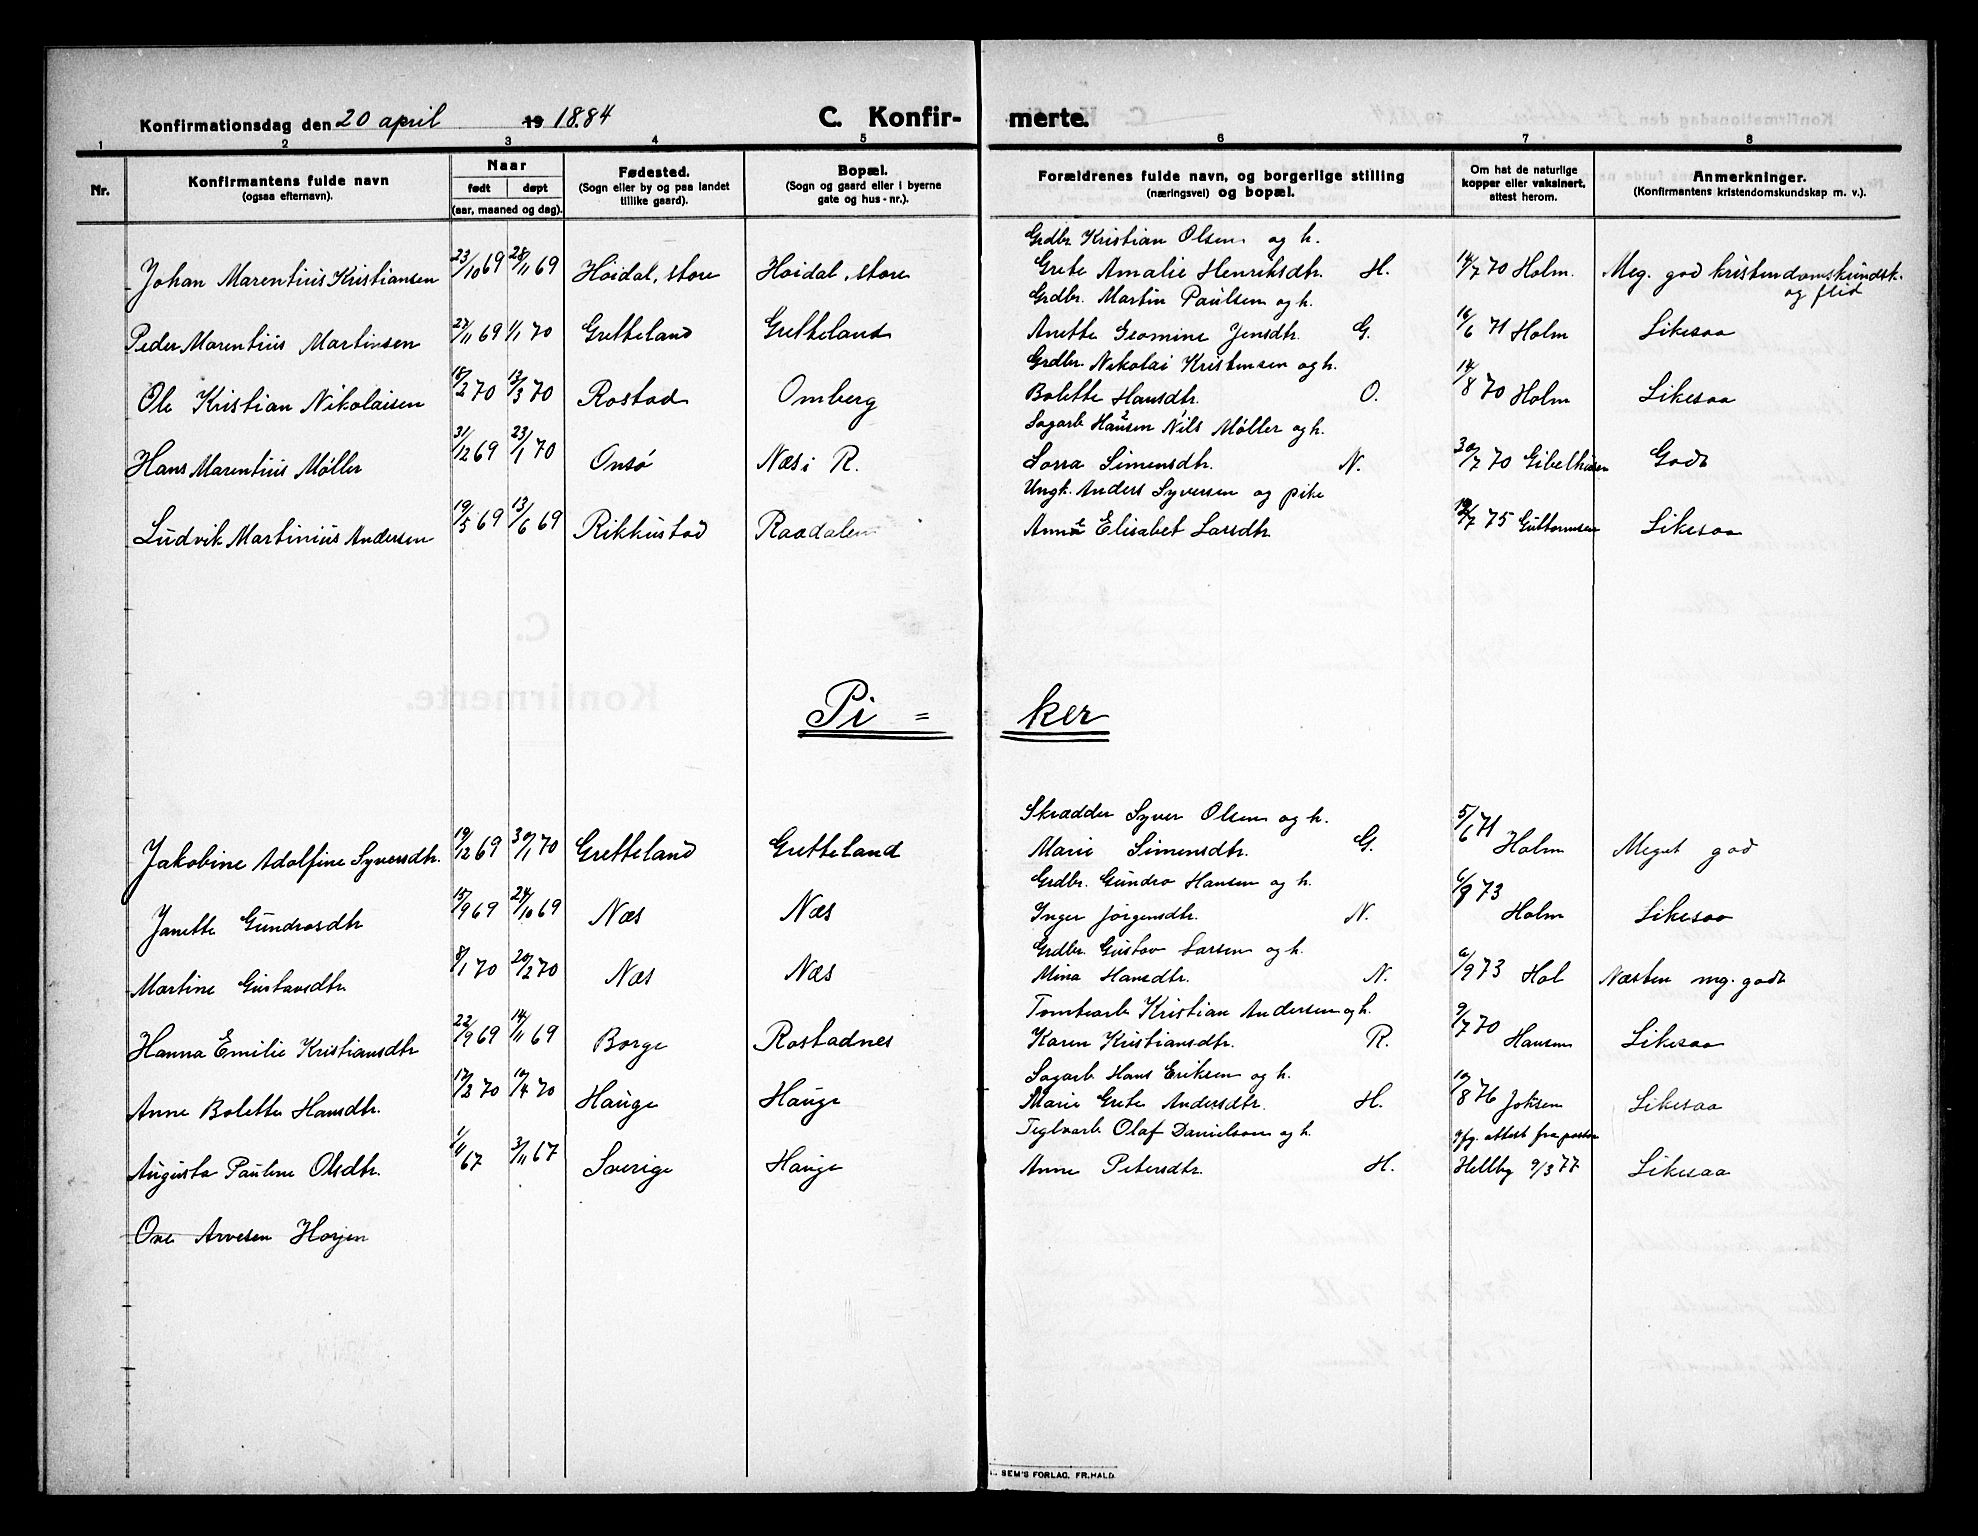 Konfirmationsdag den 20 april 19 1884 C. Konfir- merte.
1 2 3 4 5 6 7 8
Nr. Konfirmantens fulde navn (ogsaa efternavn). Naar født døpt (aar, maaned og dag). Fødested. (Sogn eller by og paa landet tillike gaard). Bopæl. (Sogn og gaard eller i byerne gate og hus-nr.). Forældrenes fulde navn, og borgerlige stilling (næringsvei) og bopæl. Om hat de naturlige kopper eller vaksinert, attest herom. Anmerkninger. (Konfirmantens kristendomskundskap m. v.).
Grdbr. Kristian Olsen og h.
Johan Marentius Kristiansen 23/10 69 28/11 69 Høidal, store Høidal, store Grete Amalie Henriksdtr. H. 14/7 70 Holm. Meg. god kristendomskundsk. og flid
Grdbr. Martin Paulsen og h.
Peder Marentius Martinsen 27/11 69 1/1 70 Gretteland Gretteland Anette Geomine Jensdtr. G. 16/6 71 Holm Likesaa
Grdbr. Nikolai Kristensen og h.
Ole Kristian Nikolaisen 18/2 70 13/3 70 Rostad Omberg Bolette Hansdtr. O. 14/8 70 Holm Likesaa
Sagarb. Hansen Nils Møller og h.
Hans Marentius Møller 31/12 69 23/1 70 Onsø Næs i R. Lorra Simensdtr. N. 30/7 70 Gibelhusen Godt
Ungk. Anders Syversen og pike
Ludvik Martinius Andersen 19/5 69 13/6 69 Rikkustad Raadalen Anne Elisabet Larsdtr. /7 75 Guttormsen Likesaa
Pi = ker
Skrædder Syver Olsen og h.
Jakobine Adolfine Syversdtr. 19/12 69 30/1 70 Gretteland Gretteland Marie Simensdtr. G. 5/6 71 Holm Meget god
Grdbr. Gundro Hansen og h.
Janette Gundrosdtr 15/9 69 24/10 69 Næs Næs Inger Jørgensdtr. N. 6/9 73 Holm Likesaa
Grdbr. Gustav Larsen og h.
Martine Gustavsdtr 8/1 70 20/2 70 Næs Næs Mina Hansdtr. N. 6/9 73 Hol Næsten mg. godt
Tomtearb. Kristian Andersen og h.
Hanna Emilie Kristiansdtr 22/9 69 14/11 69 Borge Rostadnes Karen Kristiansdtr. R. 9/7 70 Hansen Likesaa
Sagarb. Hans Eriksen og h.
Anne Bolette Hansdtr. 17/2 70 10/4 70 Hauge Hauge Marie Grete Andersdtr. H. 10/8 76 Joksen Likesaa
Teglvarb. Olaf Danielson og h. ifg. attest fra pastor
Augusta Pauline Olsdtr. 1/11 67 3/11 67 Sverige Hauge Anne Petersdtr. H. Hellby 9/3 77 Likesaa
Ove Arvesen Horjen
SEM'S FORLAG, FR.HALD.